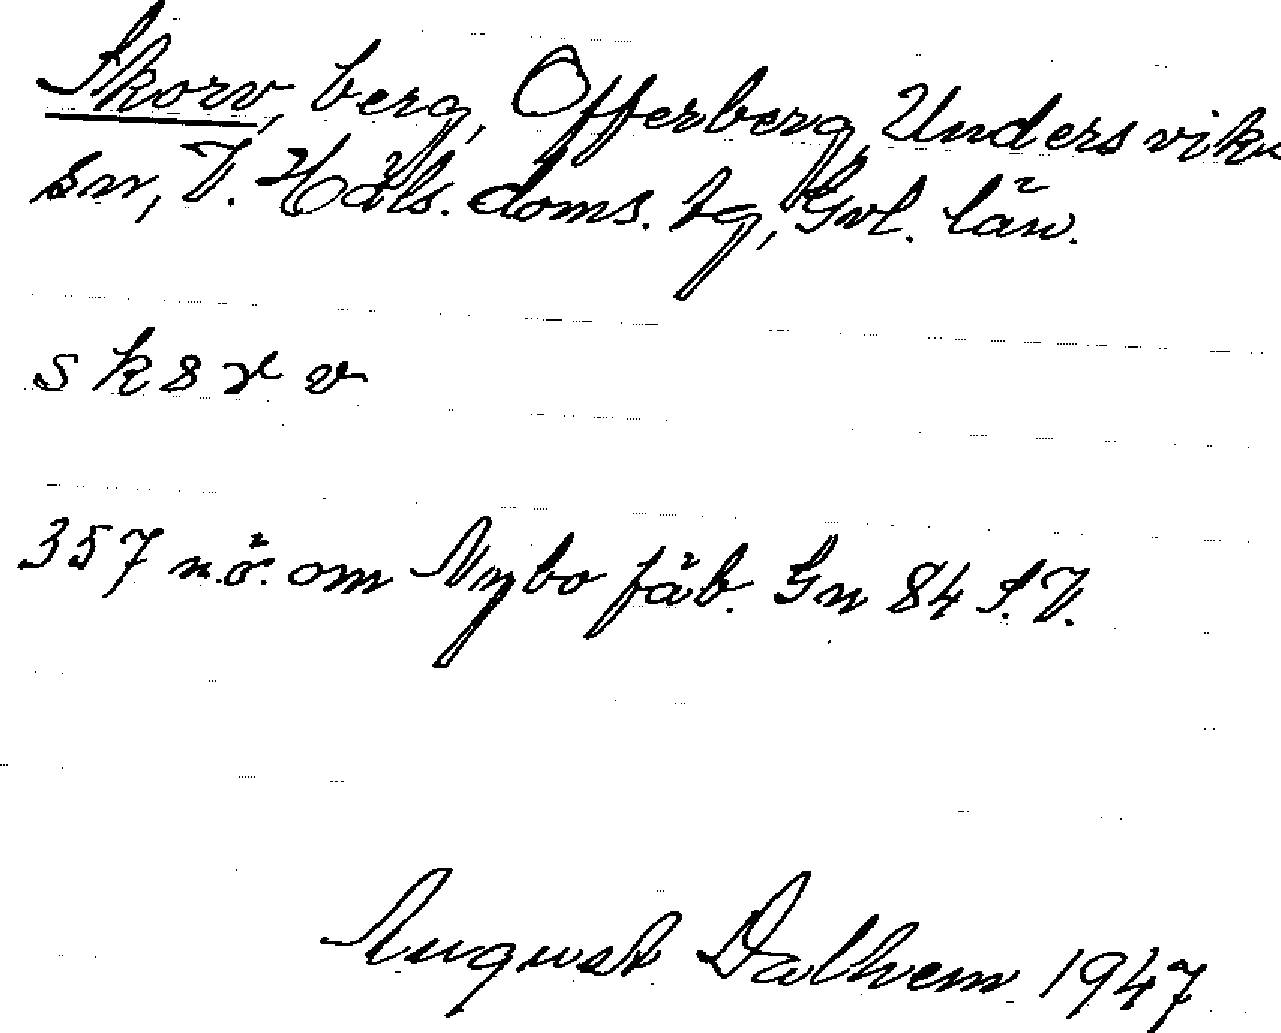 Skorv, berg, Offerberg, Undersviks
sn, V. Häls. doms. tg, Gvl. län.
s k 8 r v
357 n.ö. om Nybo fäb. Gn 84 S.V.
August Dalhem 1947